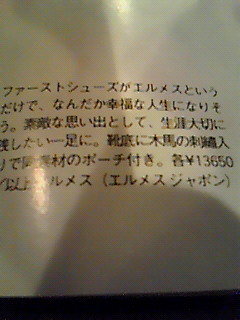 ファーストシューズがエルメスという
だけで、なんだか幸福な人生になりそ
う。素敵な思い出として、生涯大切に
残したい一足に。靴底に木馬の刺繍入
りで同素材のポーチ付き。各¥13650
/以上エルメス（エルメスジャポン）